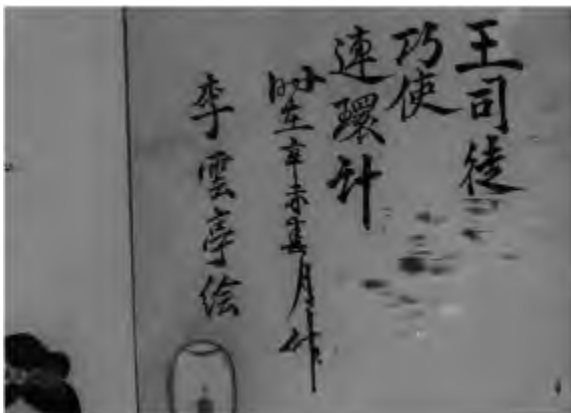 王司徒
巧使
連環计
时在辛未月作
李雲亭绘